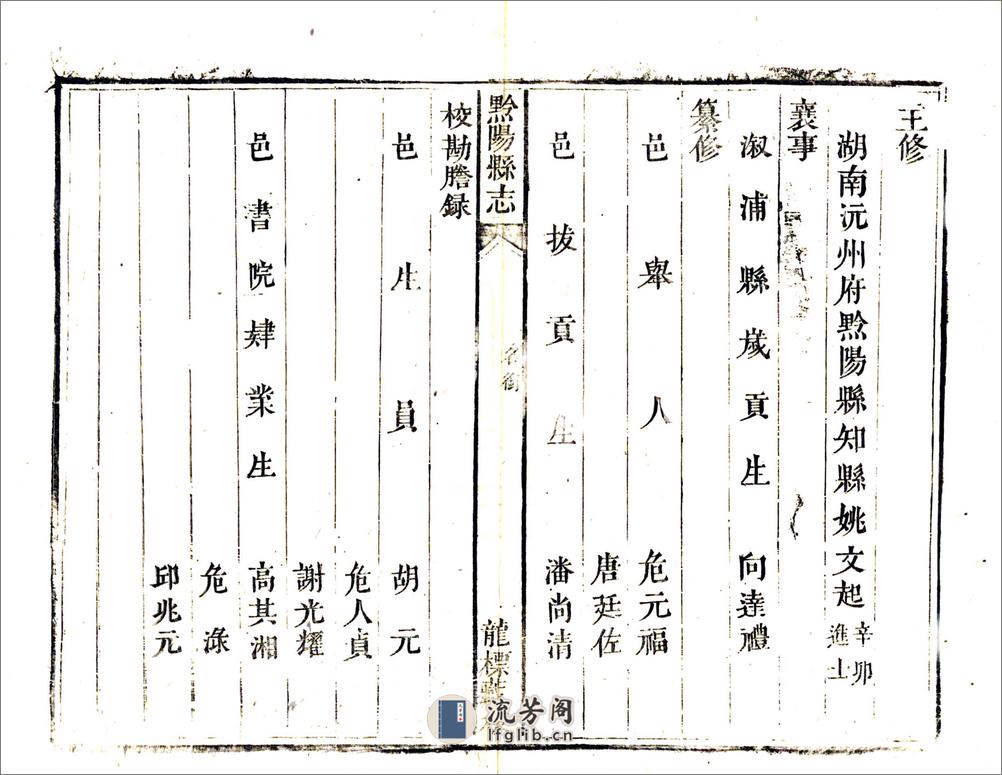 主修
湖南沅州府黔陽縣知縣姚文起 辛卯進士
襄事
溆浦縣歲貢生 向達禮
纂修
邑舉人 危元福
唐廷佐
邑拔貢生 潘尚清
黔陽縣志
名銜
龍標
校勘謄録
邑生員 胡元
危人貞
謝光耀
邑書院肄業生 高其湘
危淥
邱兆元
流芳阁
lfglib.cn